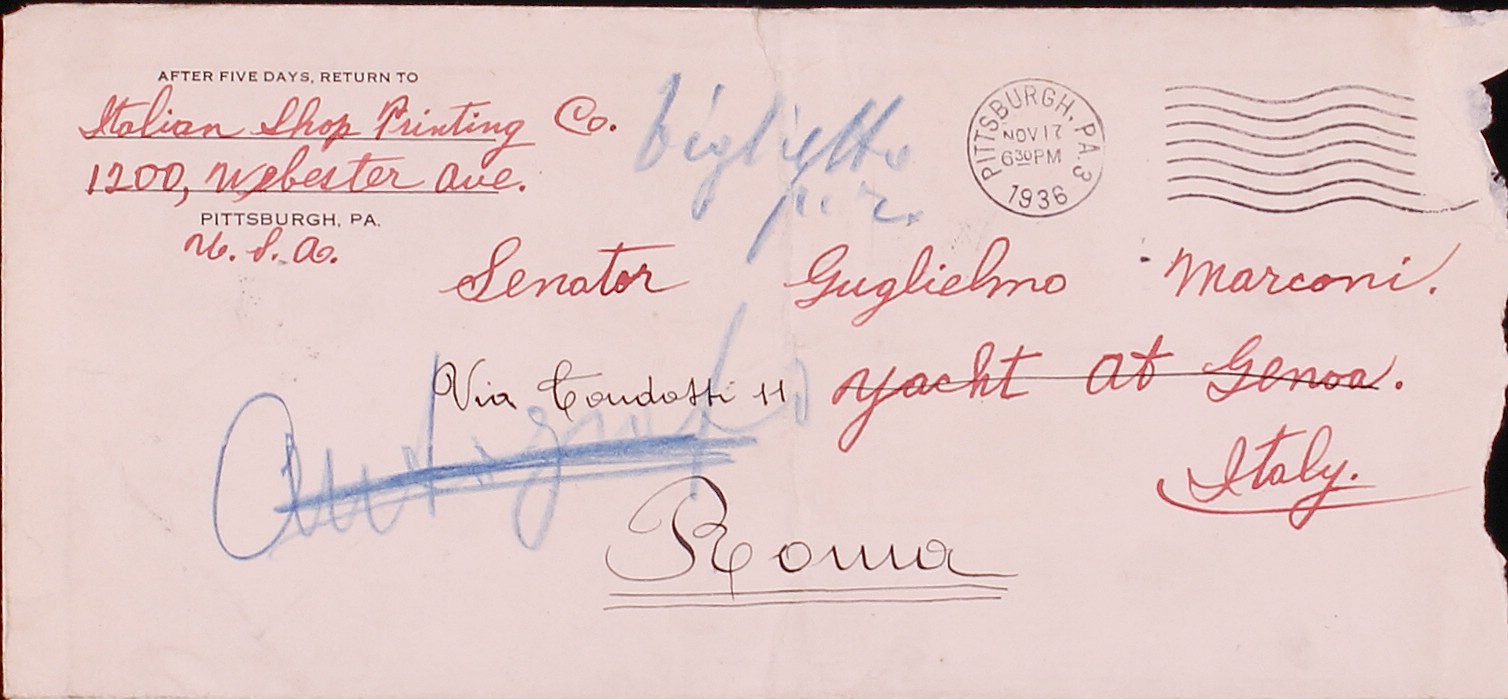 AFTER FIVE DAYS, RETURN TO
Italian Shop Printing Co.
1200, Webester Ave.
PITTSBURGH, PA.
U. S. A.
biglietto
p. r.
PITTSBURGH, PA. 3
NOV 17
6 30 PM
1936
Senator Guglielmo Marconi.
Via Condotti 11 yacht at Genoa.
Autografo
Italy.
Roma